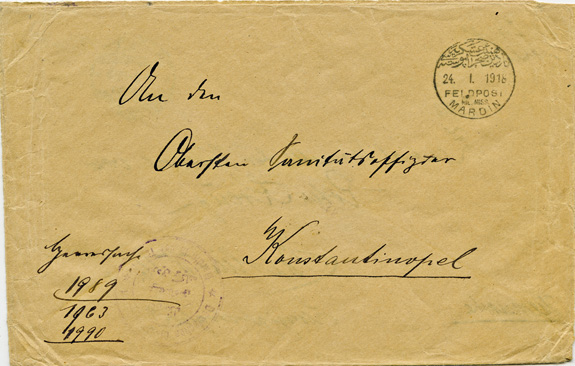 24. 1. 1918
FELDPOST
MIL. MISS.
MARDIN
An den
Obersten Sanitätsoffizier
Konstantinopel
Heeressache
1989
1963
1990